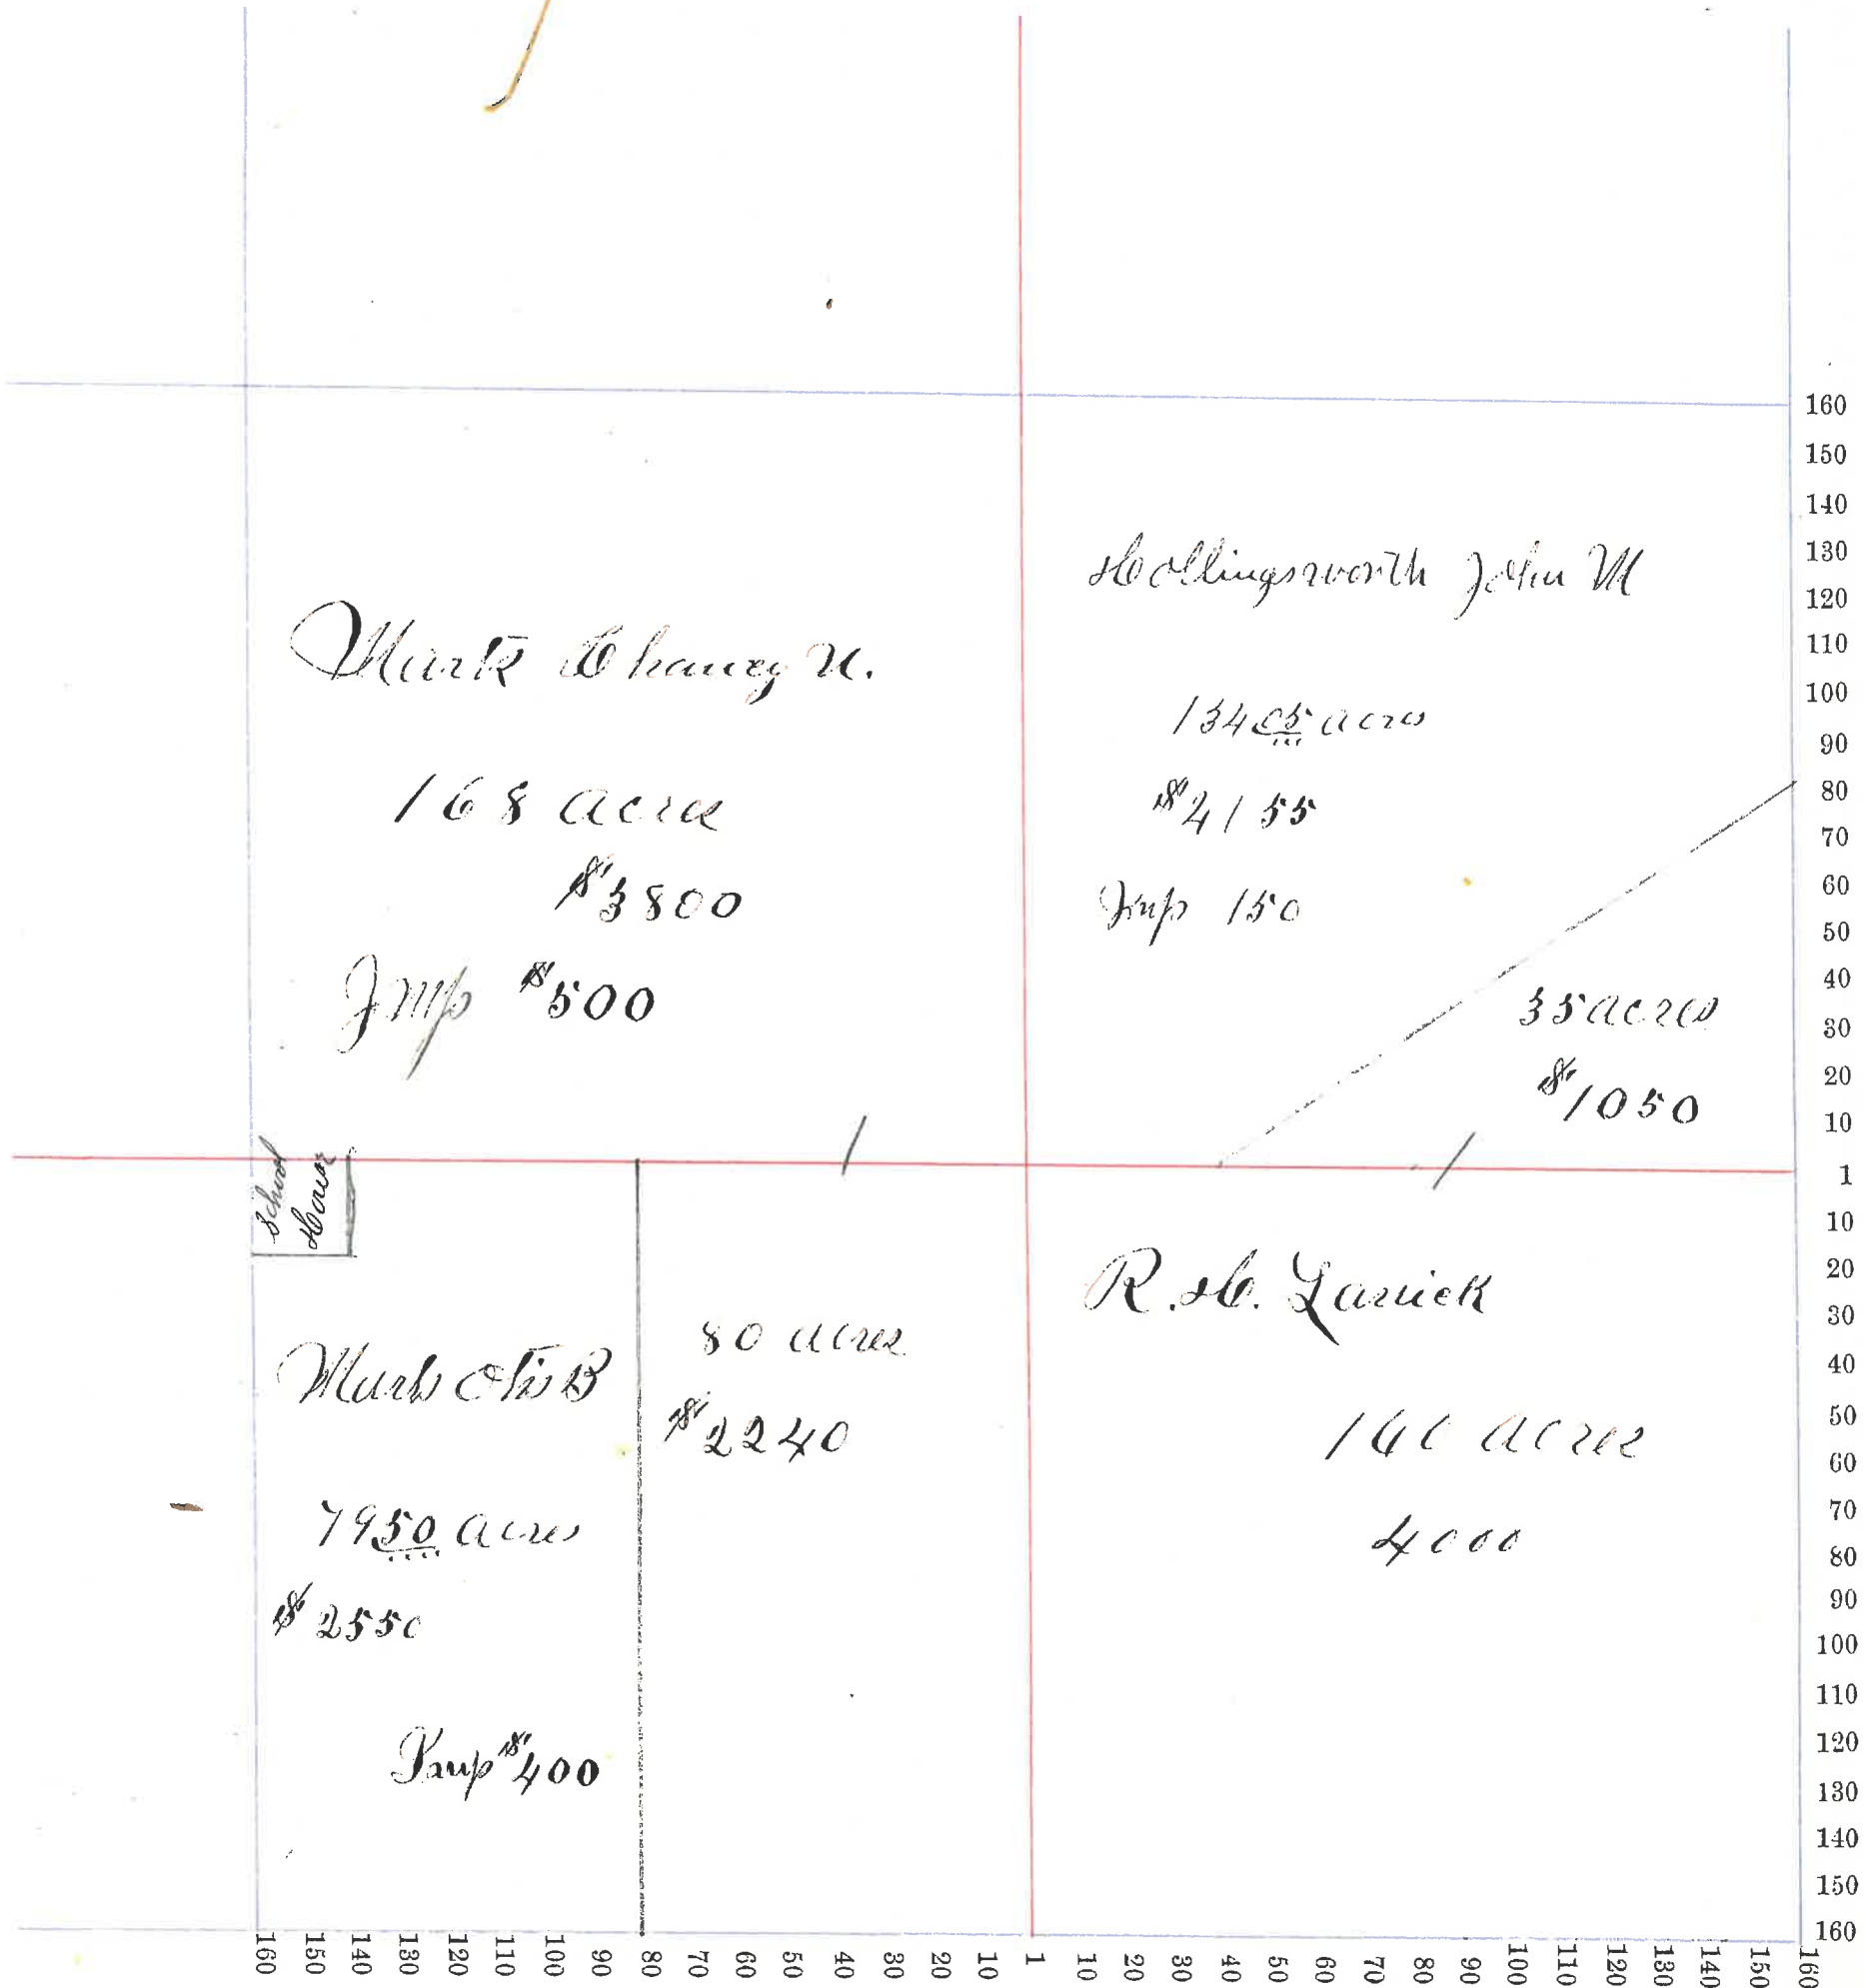 Mark Chancy N.
168 acres
$3800
Imp $500
Hollingsworth John M
134 05 acres
$4155
Imp 150
35 acres
$1050
School
House
Mark Otis B
79 50 acres
$2550
Imp $400
80 acres
$2240
R. H. Larrick
160 acres
4000
160
150
140
130
120
110
100
90
80
70
60
50
40
30
20
10
1
10
20
30
40
50
60
70
80
90
100
110
120
130
140
150
160
160 150 140 130 120 110 100 90 80 70 60 50 40 30 20 10 1 10 20 30 40 50 60 70 80 90 100 110 120 130 140 150 160